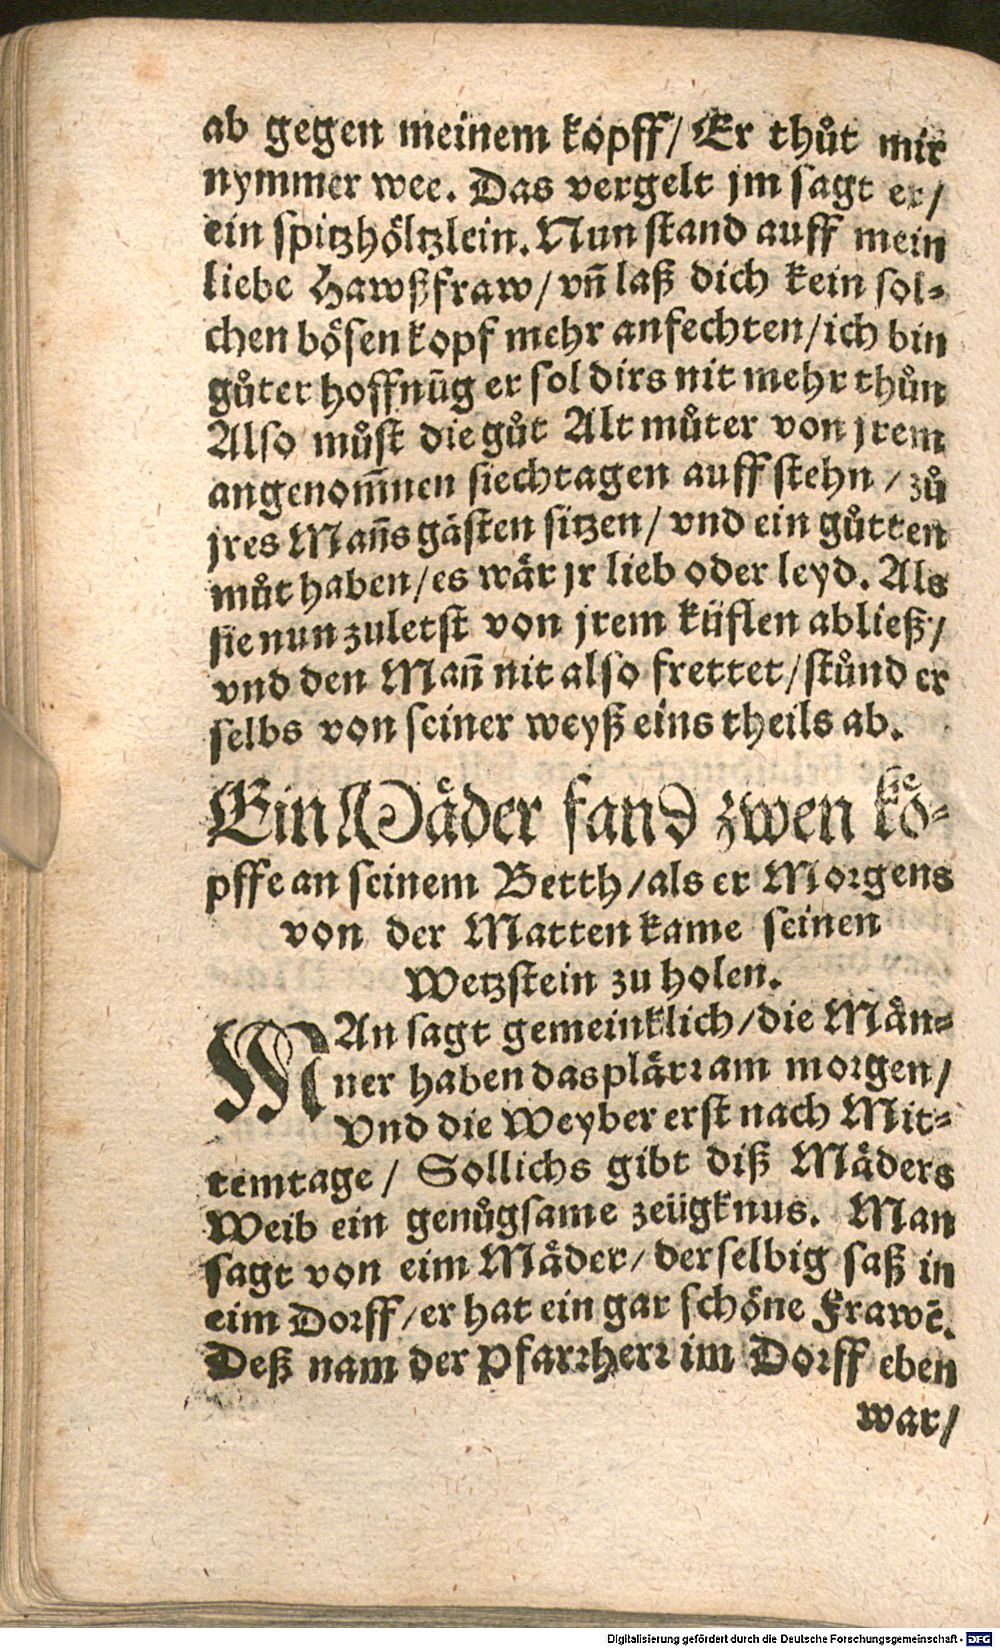 ab gegen meinem kopff/ Er thůt mir
nymmer wee. Das vergelt jm sagt er/
ein spitzhöltzlein. Nun stand auff mein
liebe Hawßfraw/ vñ laß dich kein sol-
chen bösen kopf mehr anfechten/ ich bin
gůter hoffnūg er sol dirs nit mehr thůn
Also můst die gůt Alt můter von jrem
angenom̄nen siechtagen auff stehn / zů
jres Mañs gästen sitzen/ vnd ein gůtten
můt haben/ es wär jr lieb oder leyd. Als
sie nun zuletst von jrem küflen abließ/
vnd den Mañ nit also frettet/ stůnd er
selbs von seiner weyß eins theils ab.
Ein Mäder fand zwen kö-
pffe an seinem Betth/ als er Morgens
von der Matten kame seinen
Wetzstein zu holen.
MAn sagt gemeinklich/ die Män-
ner haben das plärr am morgen/
vnd die Weyber erst nach Mit-
temtage/ Sollichs gibt diß Mäders
Weib ein genůgsame zeügknus. Man
sagt von eim Mäder/ derselbig saß in
eim Dorff/ er hat ein gar schöne Frawē.
Deß nam der Pfarrherr im Dorff eben
war/
Digitalisierung gefördert durch die Deutsche Forschungsgemeinschaft - DFG